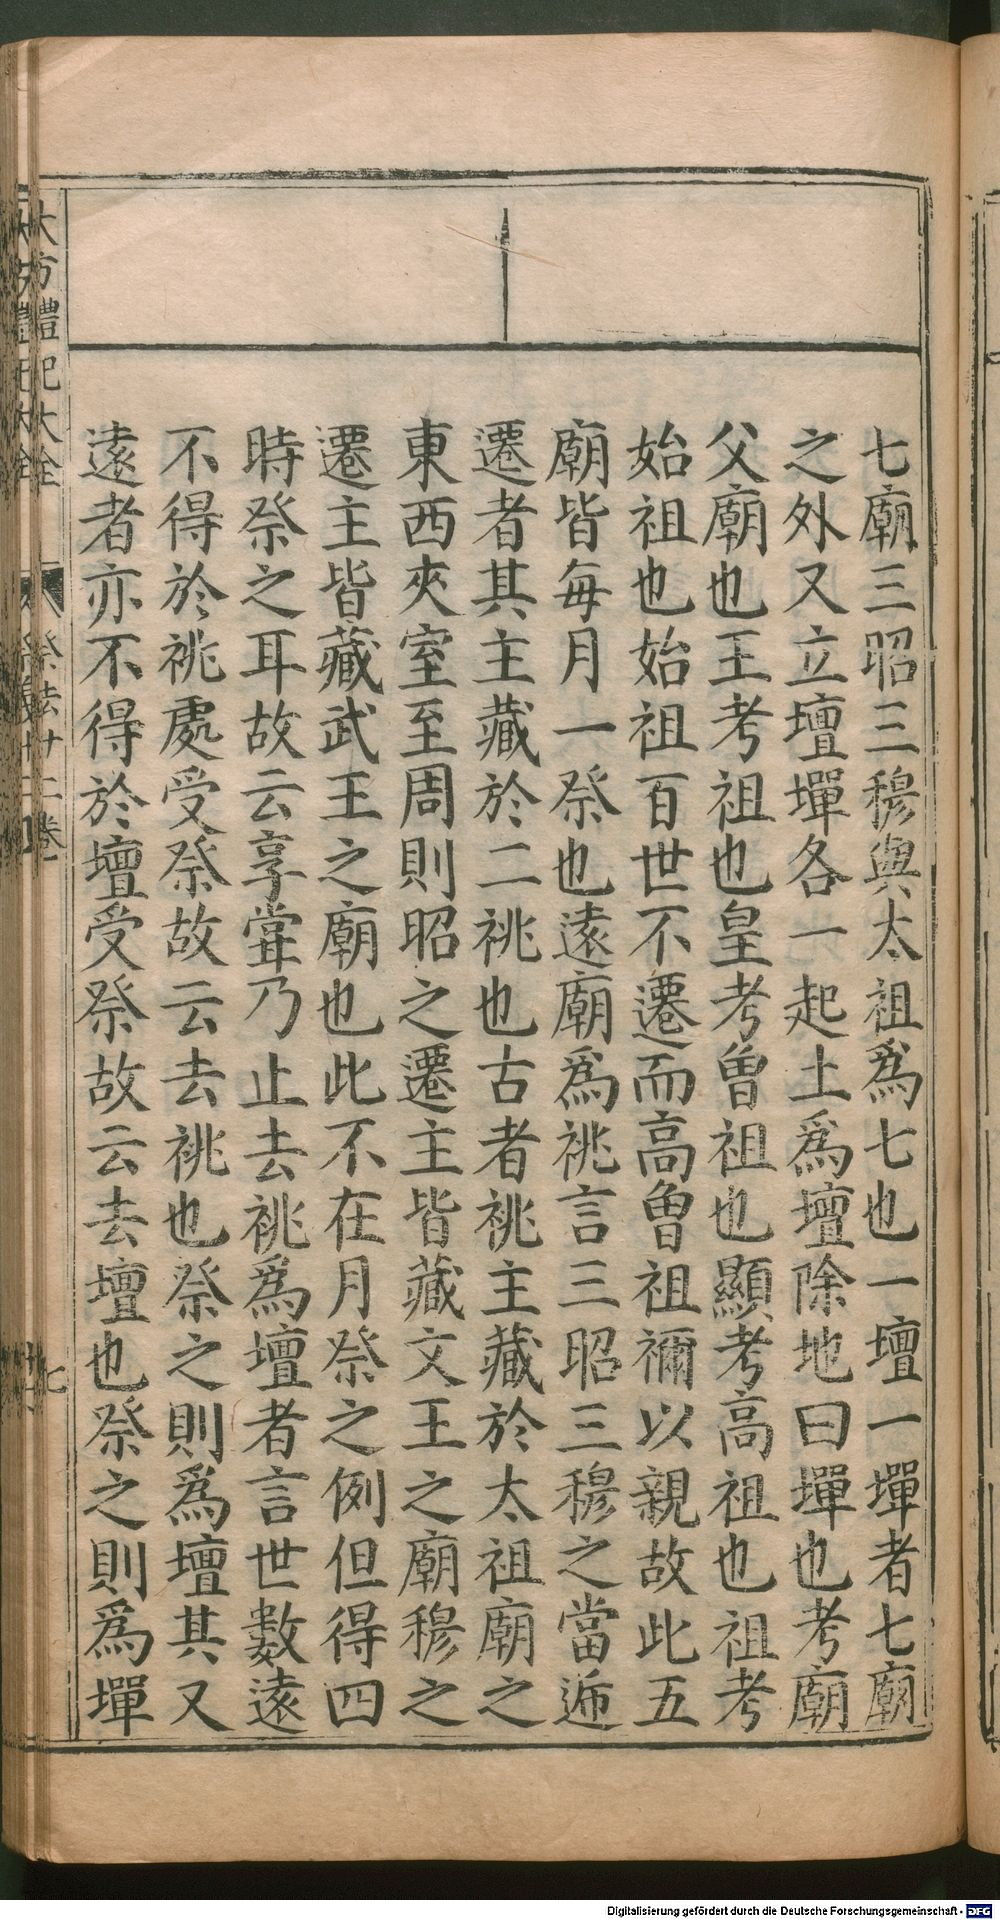 七廟三昭三穆與太祖爲七也一壇一墠者七廟
之外又立壇墠各一起土爲壇除地曰墠也考廟
父廟也王考祖也皇考曾祖也顯考高祖也祖考
始祖也始祖百世不遷而高曾祖禰以親故此五
廟皆每月一祭也遠廟爲祧言三昭三穆之當逓
遷者其主藏於二祧也古者祧主藏於太祖廟之
東西夾室至周則昭之遷主皆藏文王之廟穆之
遷主皆藏武王之廟也此不在月祭之例但得四
時祭之耳故云享甞乃止去祧爲壇者言世數遠
不得於祧處受祭故云去祧也祭之則爲壇其又
遠者亦不得於壇受祭故云去壇也祭之則爲墠
大方禮記大全 祭法廿二卷 七
Digitalisierung gefördert durch die Deutsche Forschungsgemeinschaft - DFG